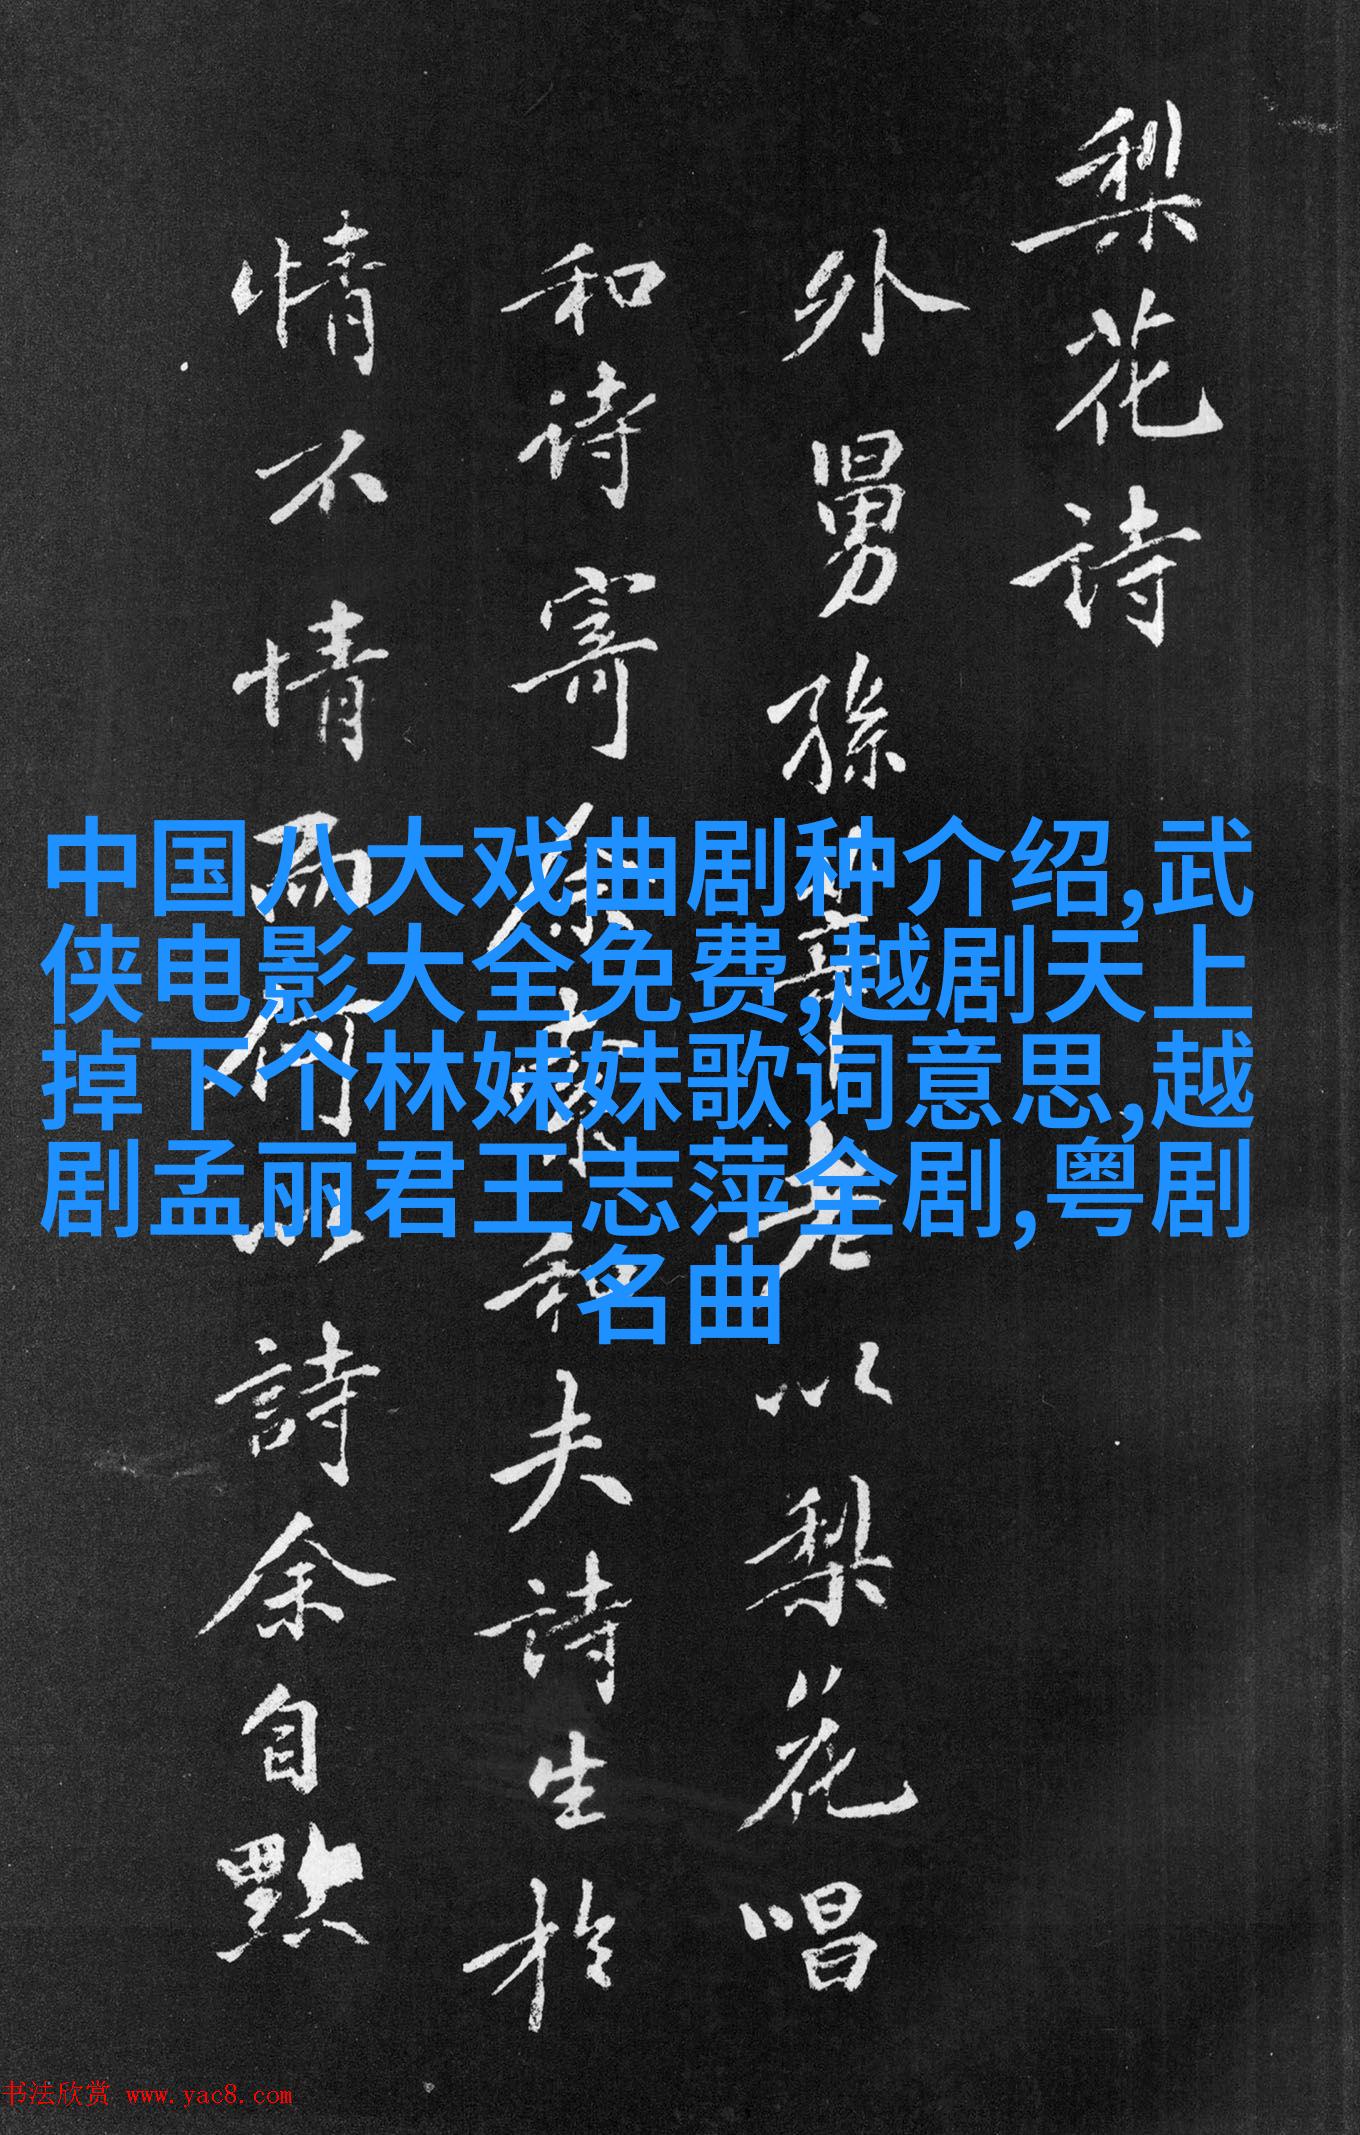 梨花詩
外舅孫莘老以梨花唱
和诗寄徐東和夫詩生於
情不情而何以詩余自黙
中国八大戏曲剧种介绍,武
侠电影大全免费,越剧天上
掉下个林妹妹歌词意思,越
剧孟丽君王志萍全剧,粤剧
名曲
书法欣赏 www.yac8.com